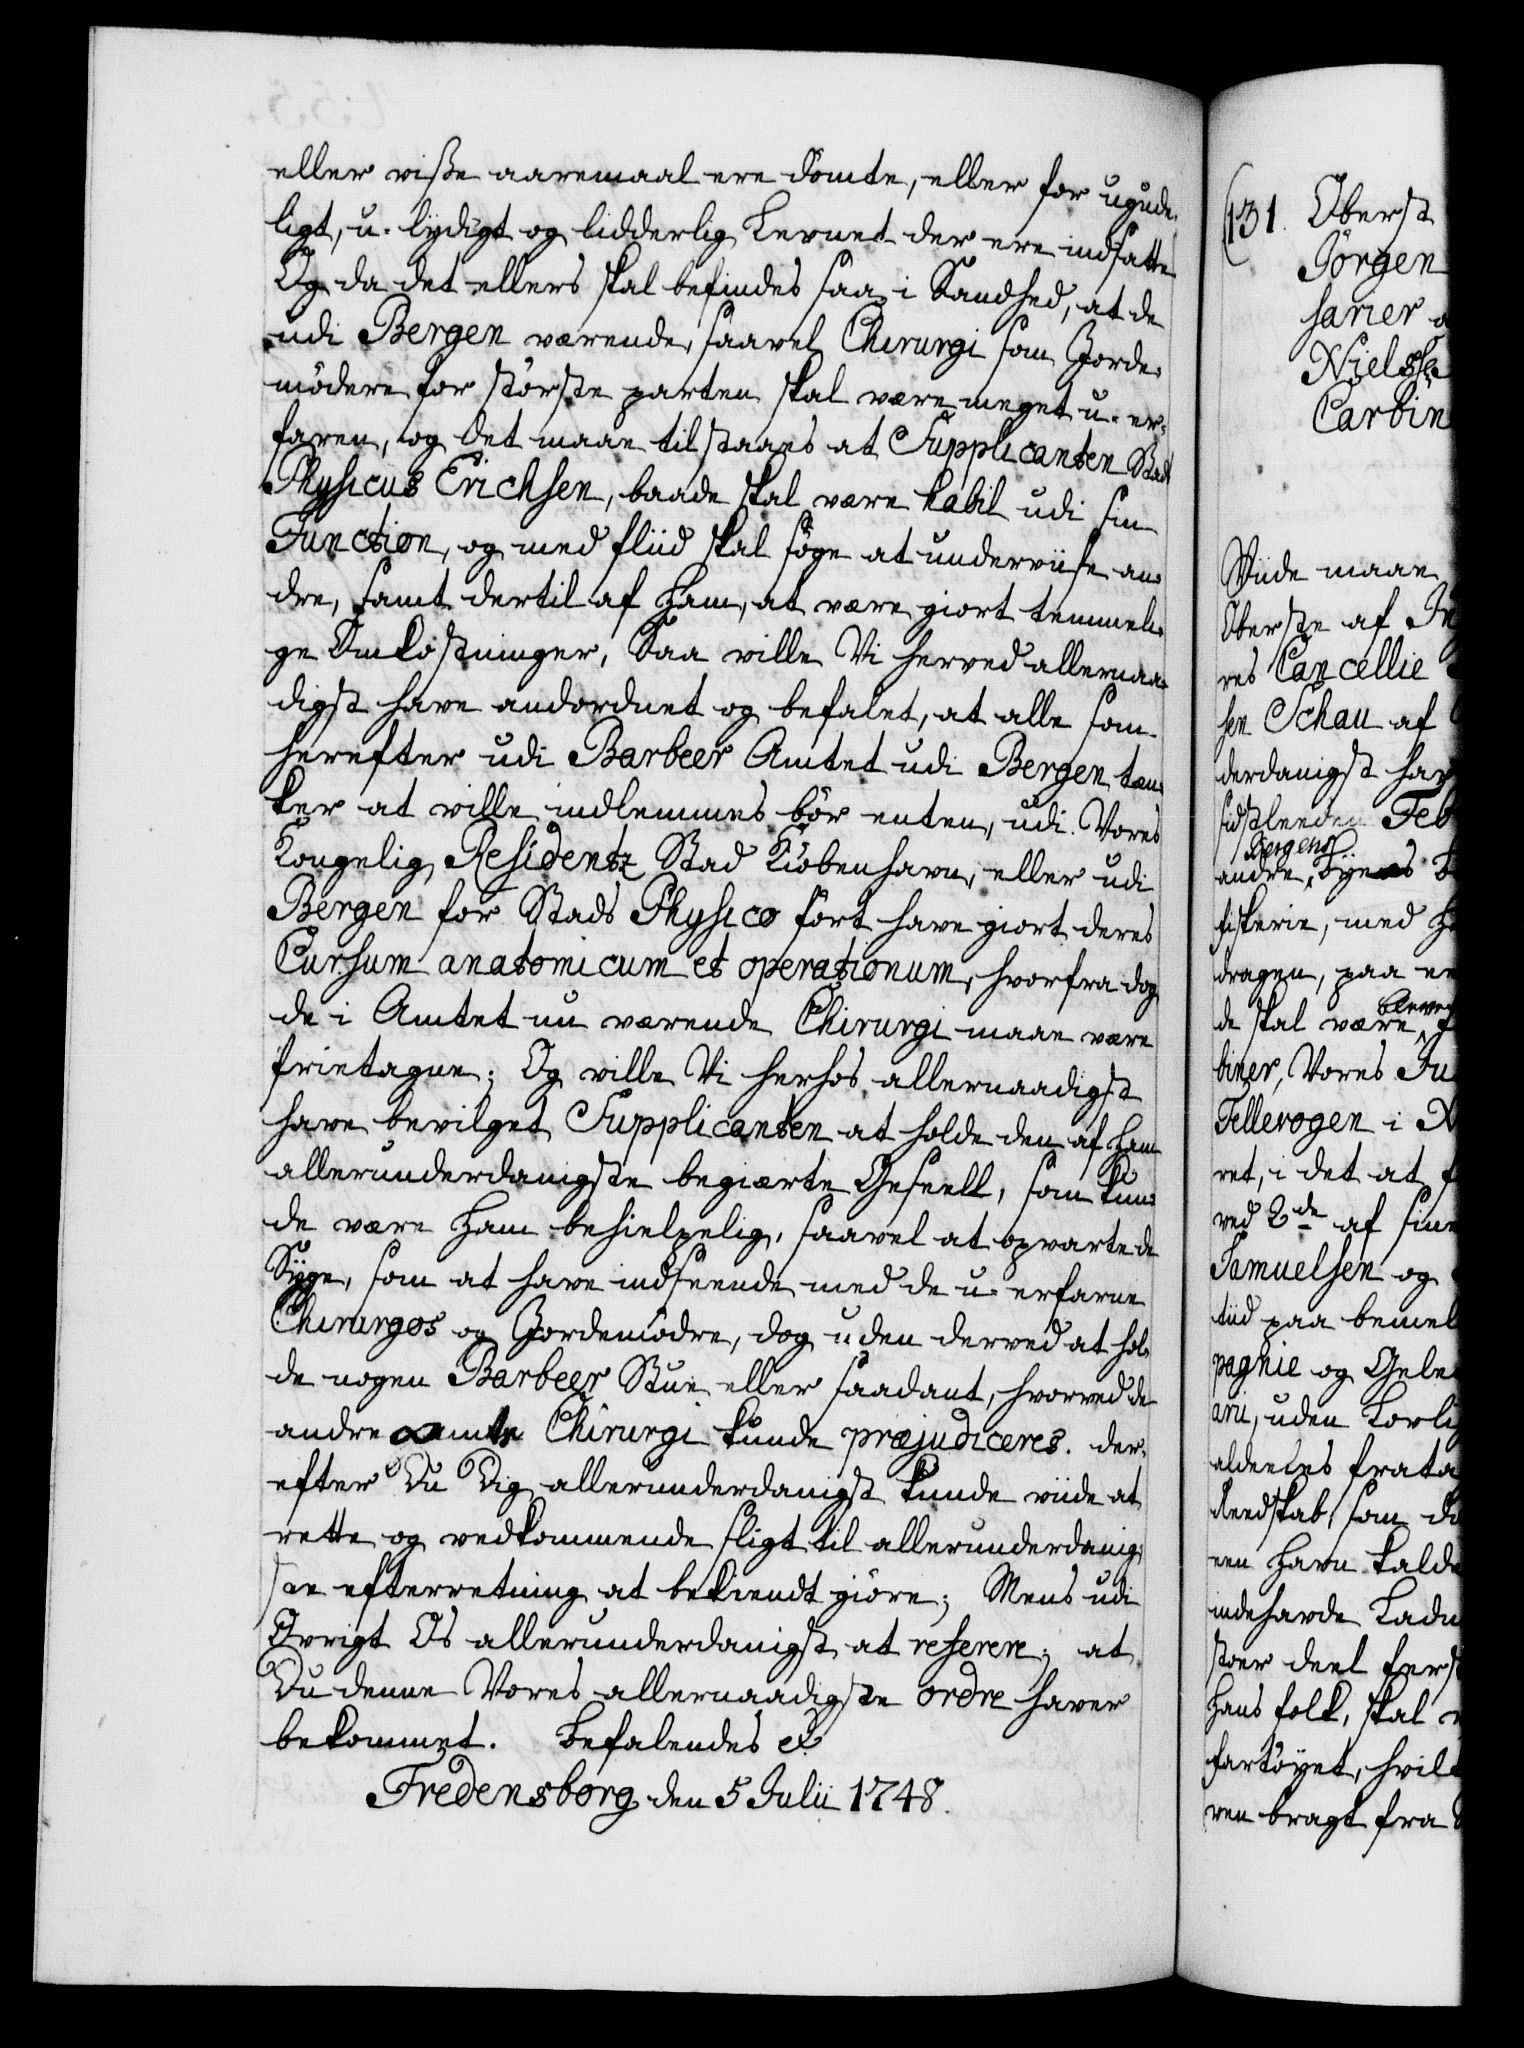 eller viße aaremaal ere dömte, eller for ugude-
ligt, u-lydigt og lidderlig Levnet der ere indsatte
Og da det ellers skal befindes saa i Sandhed, at de
udi Bergen værende, saavel Chirurgi som Jorde-
mödere for störste parten skal være meget u-er-
faren, og det maae tilstaaes at Supplicanten Stad
Physicus Erichsen, baade skal være habil udi sin
Function, og med fliid skal söge at underviise an-
dre, samt dertil af ham, at være giort temmeli-
ge Omkostninger, Saa ville Vi herved allernaa-
digst have andordnet og befalet, at alle som
herefter udi Barbeer Amtet udi Bergen tæn-
ker at ville indlemmes bör enten, udi Vores
Kongelig Residentz Stad Kiöbenhavn, eller udi
Bergen for Stads Physico först have giort deres
Cursum anatomicum et operationum, hvorfra dog
de i Amtet nu værende Chirurgi maae være
frietagne; Og ville Vi herhos allernaadigst
have bevilget Supplicanten at holde den af ham
allerunderdanigste begiærte Geseell, som kun-
de være ham behielpelig, saavel at opvarte de
Syge, som at have indseende med de u-erfarne
Chirurgos og Jordemödre, dog uden derved at hol-
de nogen Barbeer Stue eller saadant, hvorved de
andre amts Chirurgi kunde præjudiceres. der-
efter Du Dig allerunderdanigst kunde viide at
rette og vedkommende sligt til allerunderdanig-
ste efterretning at bekiendt giöre; Mens udi
Övrigt Os allerunderdanigst at referere; at
Du denne Vores allernaadigste ordre haver
bekommet. Befalendes &
Fredensborg den 5 Julii 1748.
131. Oberst
Jörgen
sarier
Nielsse
Carbin
Viide maae
Oberste af
res Cancellie
sen Schau af
derdanigst hav
sidstleeden Feb
Bergens
andre, Byens
fiskerie, med
dragen, paa
bleven
de skal være
biner, Vores Ju
Tellevogen i N
ret, i det at
ved 2de af sine
Samuelsen og
tiid paa bemel
pagnie og
arii, uden
aldeeles frata
Reedskab, som
een Havn kalde
indehavde Ladn
stoer deel fersk
hans folk, skal
fartöyet, hvil
ven bragt fra